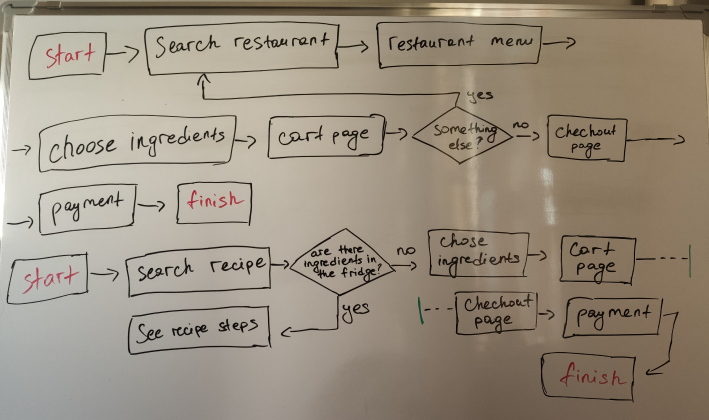 Start
Search restaurant
restaurant menu
yes
choose ingredients
cart page
something
else?
no
Chechout
page
payment
finish
start
search recipe
are there
ingredients in
the fridge?
no
chose
ingredients
Cart
page
yes
See recipe steps
Chechout
page
payment
finish